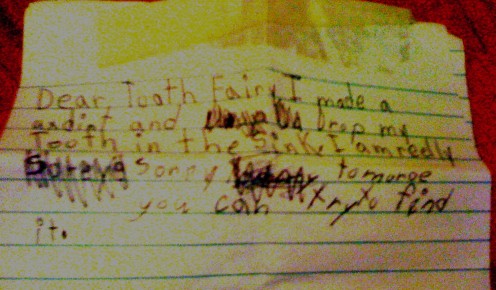 Dear Tooth Fairy I made a
axdint and Drop my
Tooth in the Sink. I am redly
sorry tomorge
you can try to find
it.